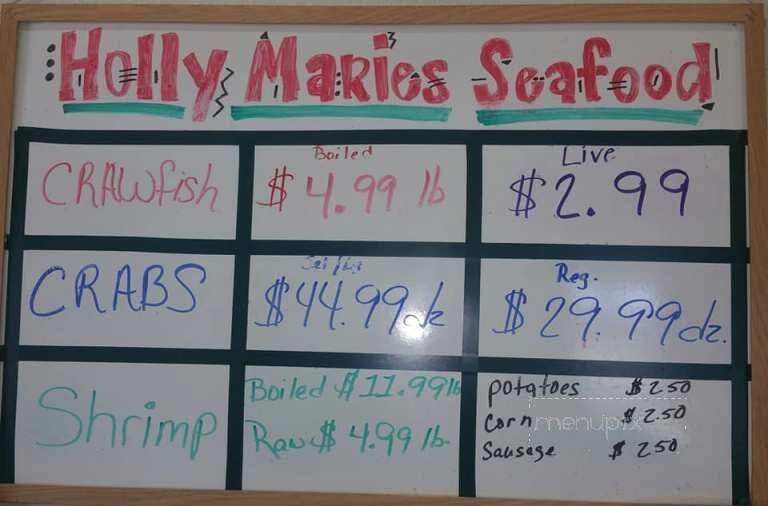 Holly Maries Seafood
CRAWfish
Boiled
$4.99 lb
Live
$2.99
CRABS
$44.99 dz
Reg.
$29.99 dz.
Shrimp
Boiled $11.99 lb
Raw $4.99 lb.
potatoes $2.50
Corn $2.50
Sausage $2.50
menupix